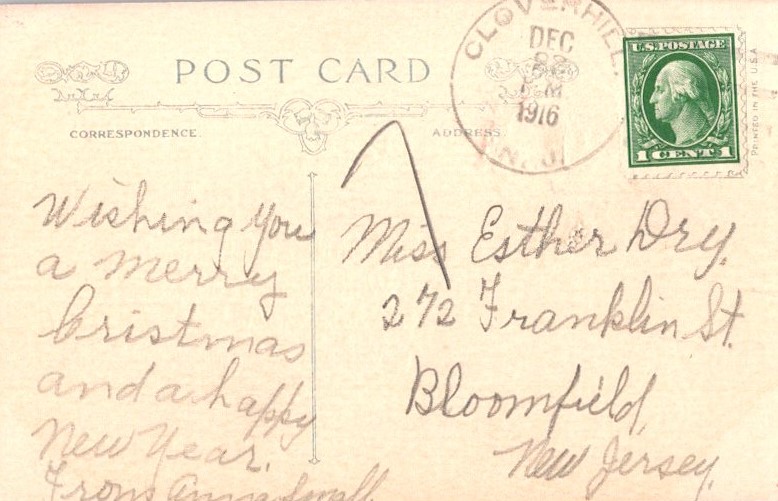 POST CARD
CORRESPONDENCE.
ADDRESS.
CLOVERHILL.
DEC
PM
1916
N.J.
U.S. POSTAGE
1 CENT 1
PRINTED IN THE U.S.A
Wishing you
a merry
Cristmas
and a happy
New Year.
From Anna
Miss Esther Dry.
272 Franklin St.
Bloomfield,
New Jersey.